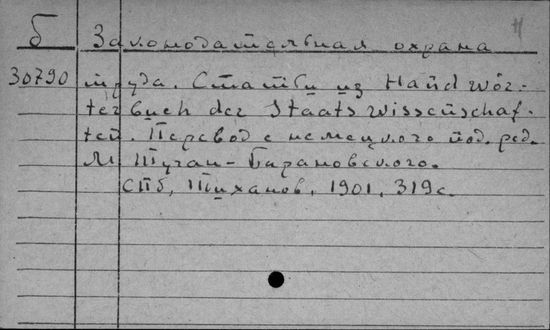 Б Законодательная охрана
30790 труда. Статьи из Handwör-
terbuch der Staatswissenschaf-
ten. Перевод с немецкого под. ред.
М Туган-Барановского.
СПб, Тиханов, 1901, 319с.